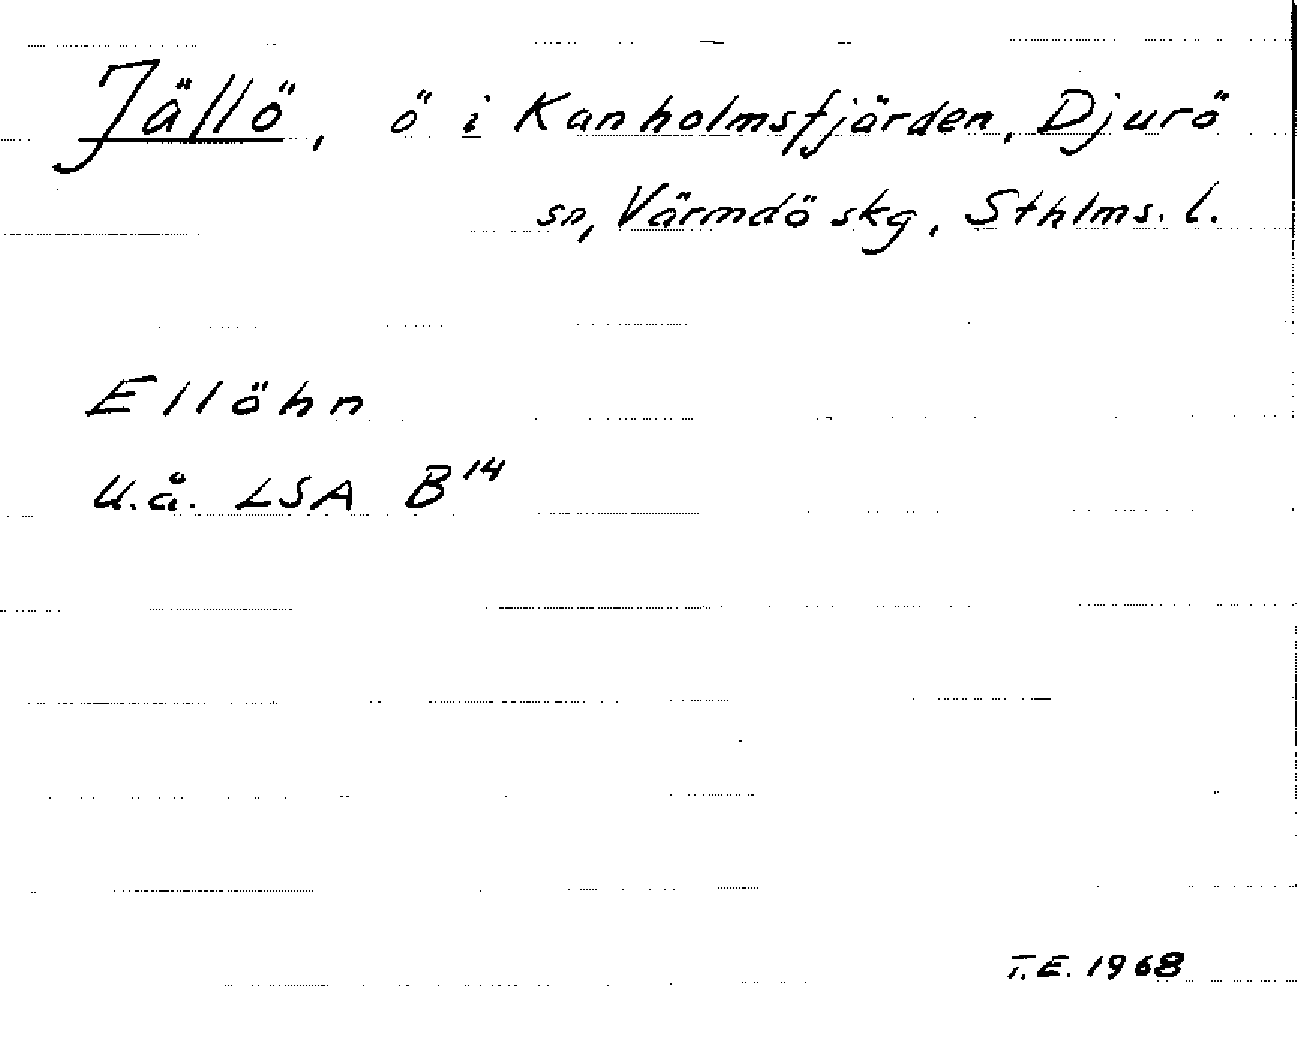 Jällö, ö i Kanholmsfjärden, Djurö
sn, Värmdö skg, Sthlms. l.
Ellöhn
U.å. LSA B¹⁴
T.E. 1968